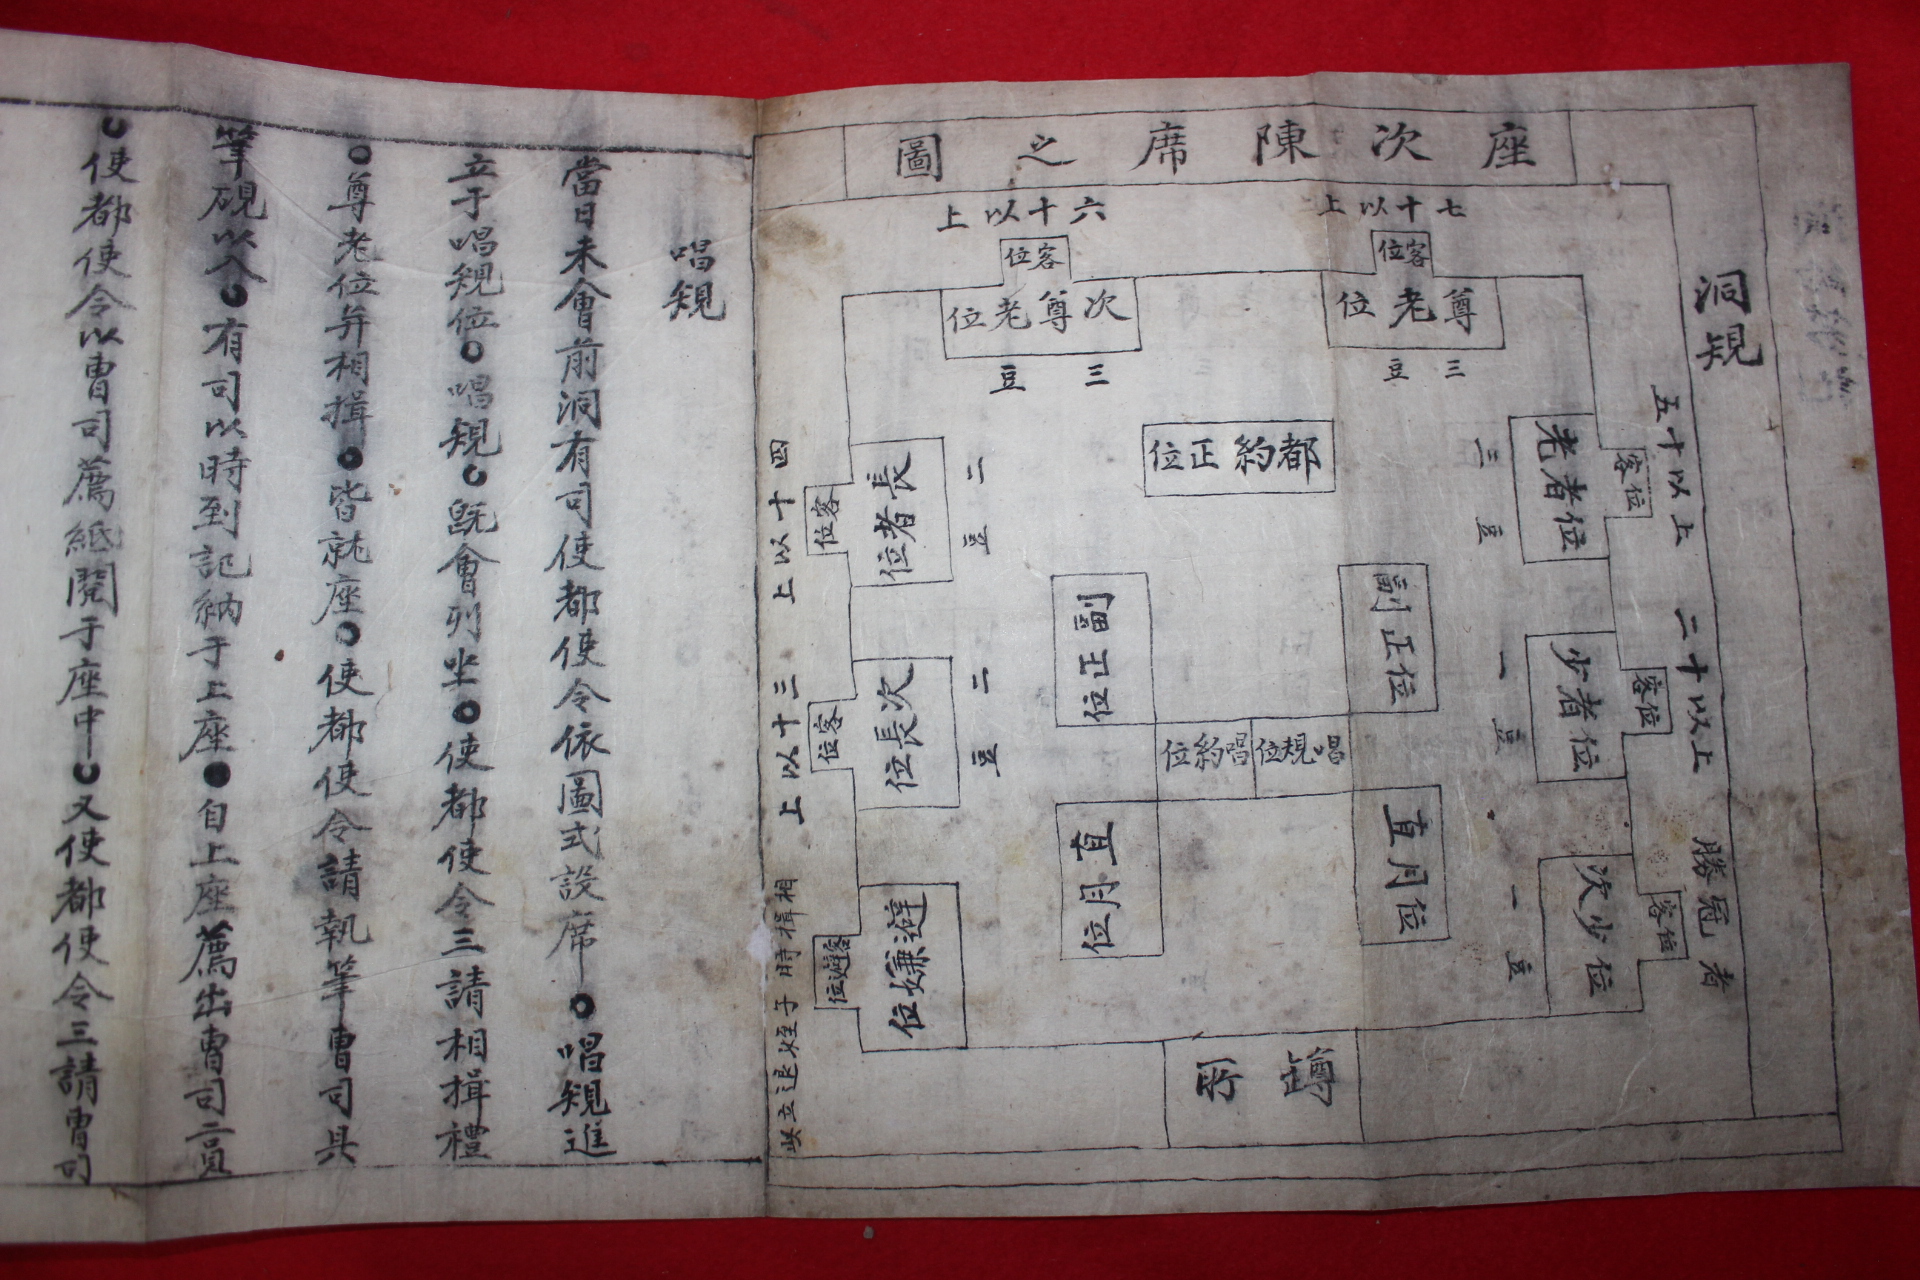 洞規
座次陳席之圖
七十以上
客位
尊老位
三豆
六十以上
客位
次尊老位
三豆
都約正位
五十以上
客位
老者位
三豆
二十以上
客位
少者位
一豆
勝冠者
客位
次少位
一豆
副正位
直月位
唱規位
唱約位
副正位
直月位
四十以上
客位
長者位
二豆
三十以上
客位
次長位
二豆
避嫌位
相揖時子姪退立
罇所
唱規
當日未會前洞有司使都使令依圖式設席○唱規進
立于唱規位○唱規○旣會列坐○使都使令三請相揖禮
○尊老位幷相揖○皆就座○使都使令請執筆曹司具
筆硯以入○有司以時到記納于上座○自上座薦出曹司二員
○使都使令以曹司薦紙閱于座中○又使都使令三請曹司